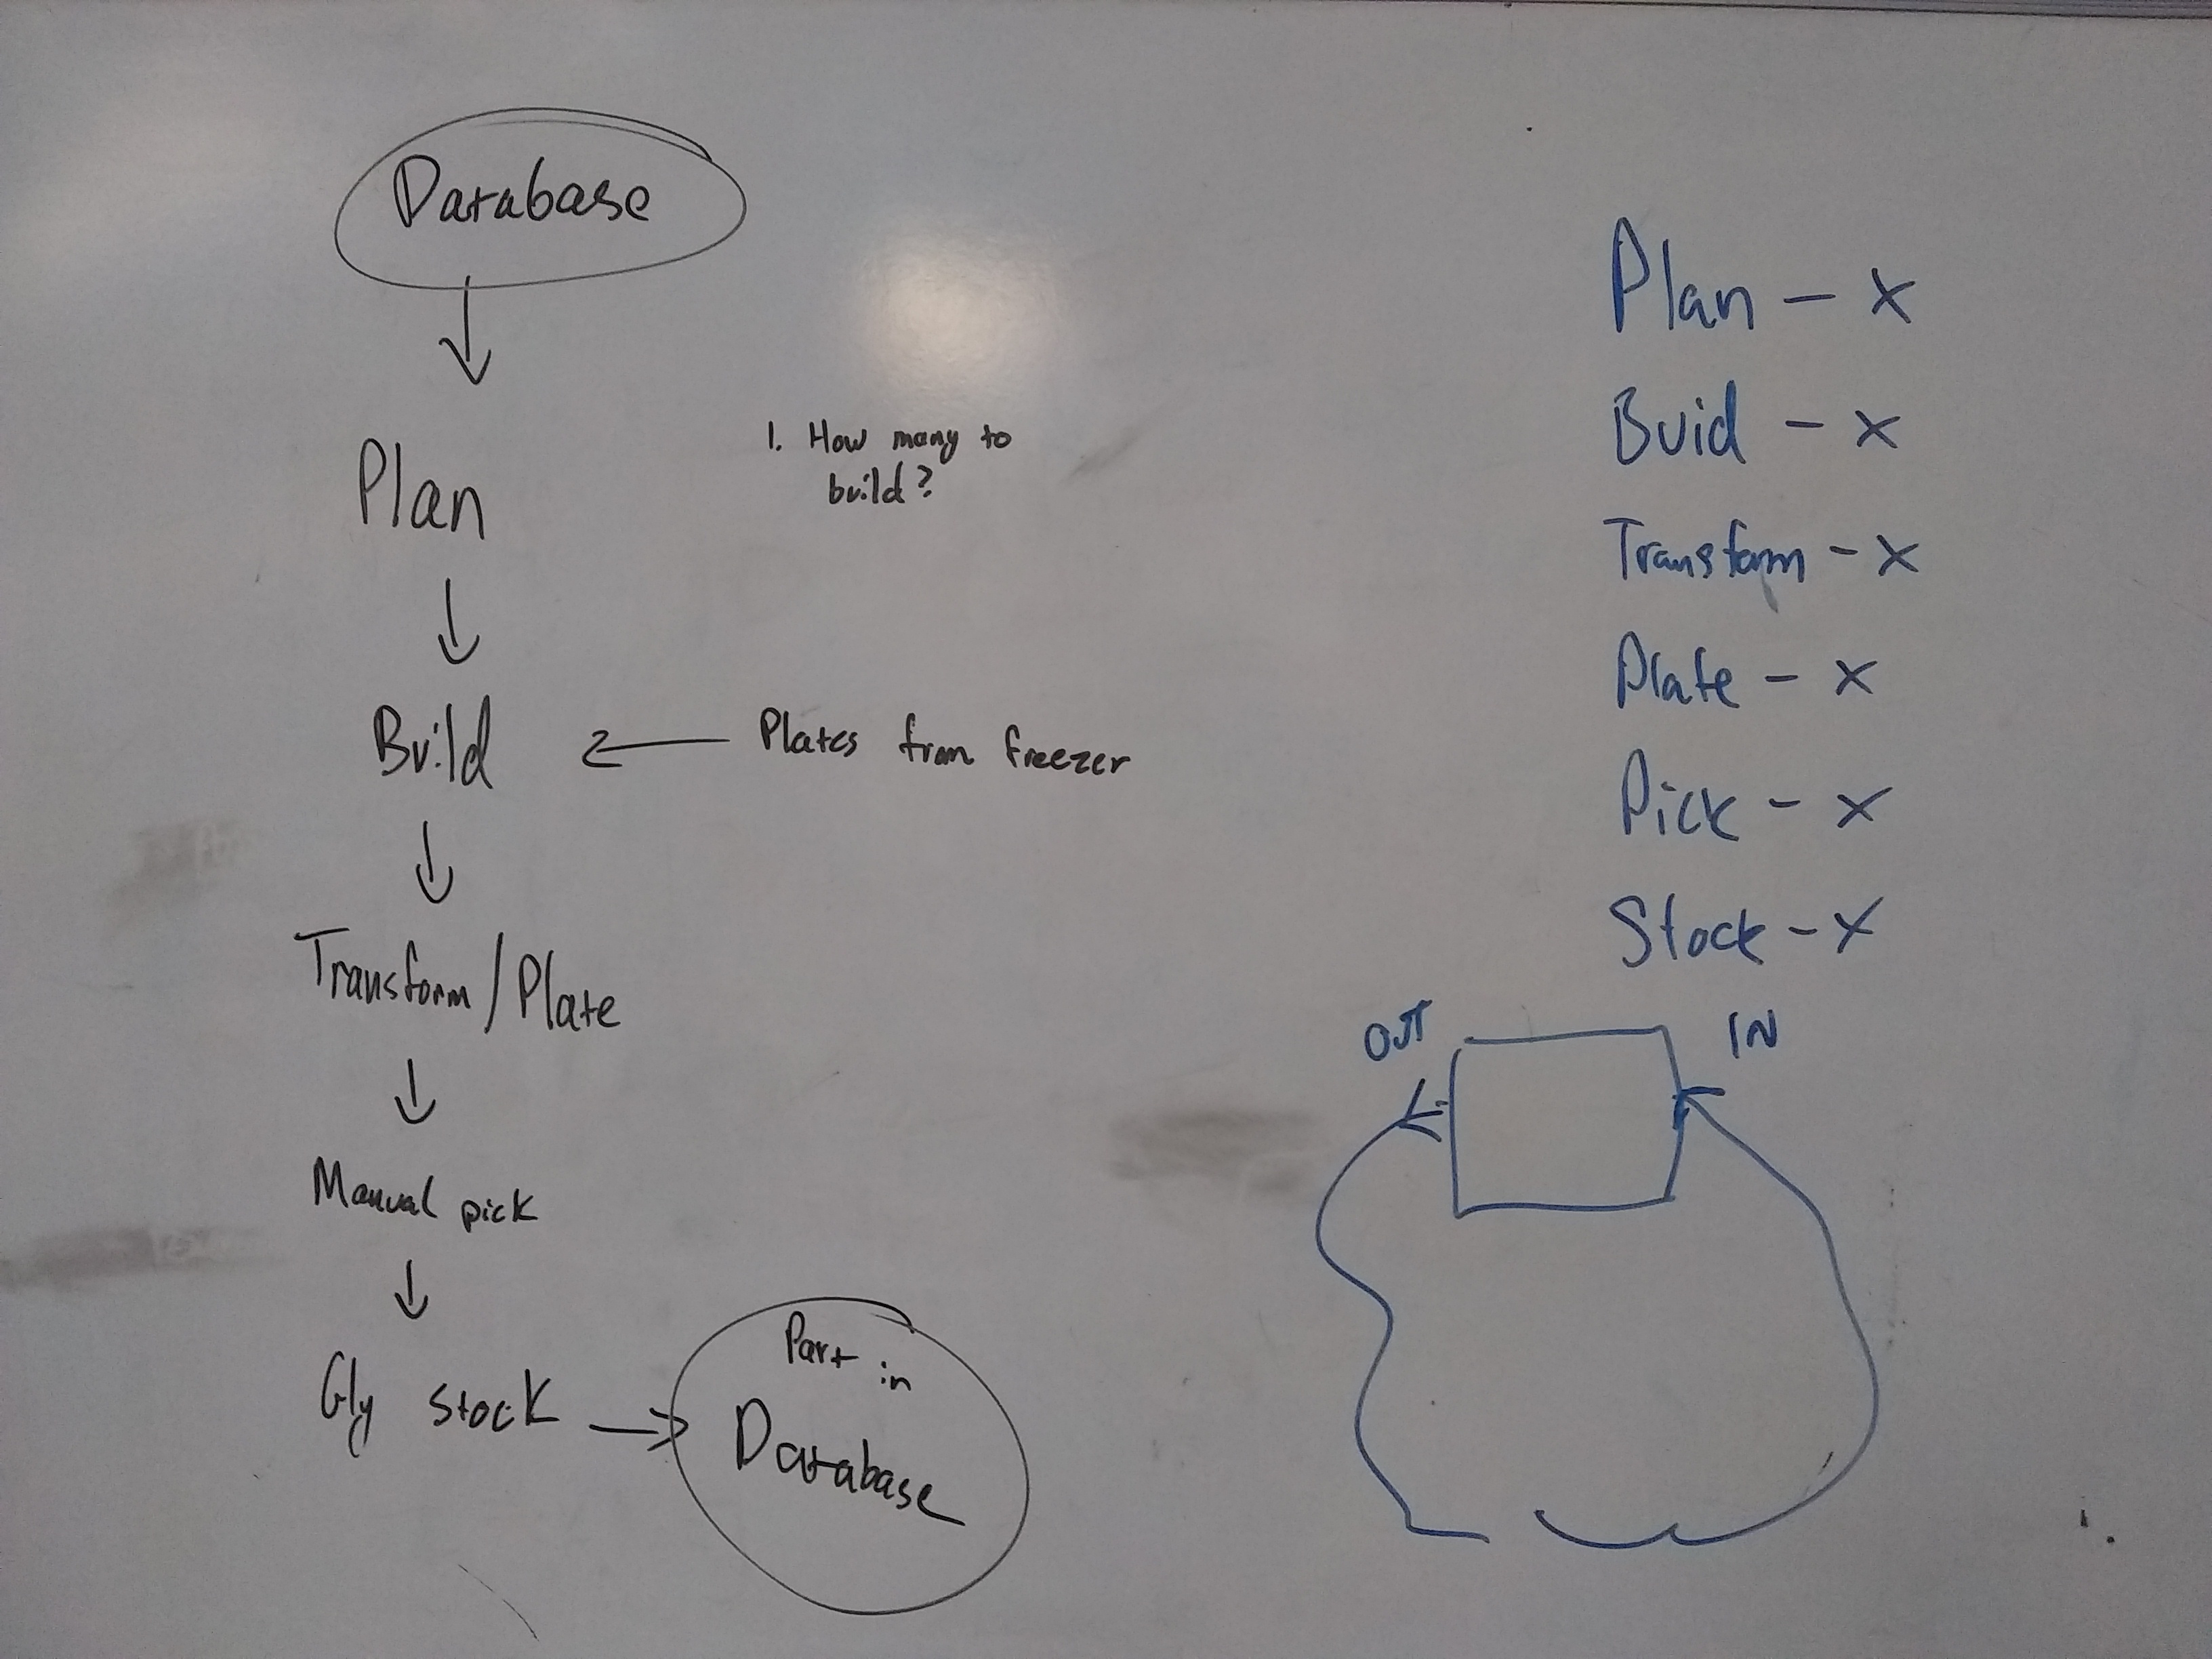 Database
Plan
1. How many to
build?
Build
Plates from freezer
Transform/Plate
Manual pick
Gly stock
Part in
Database
Plan - x
Buid - x
Transform - x
Plate - x
Pick - x
Stock - x
OUT
IN